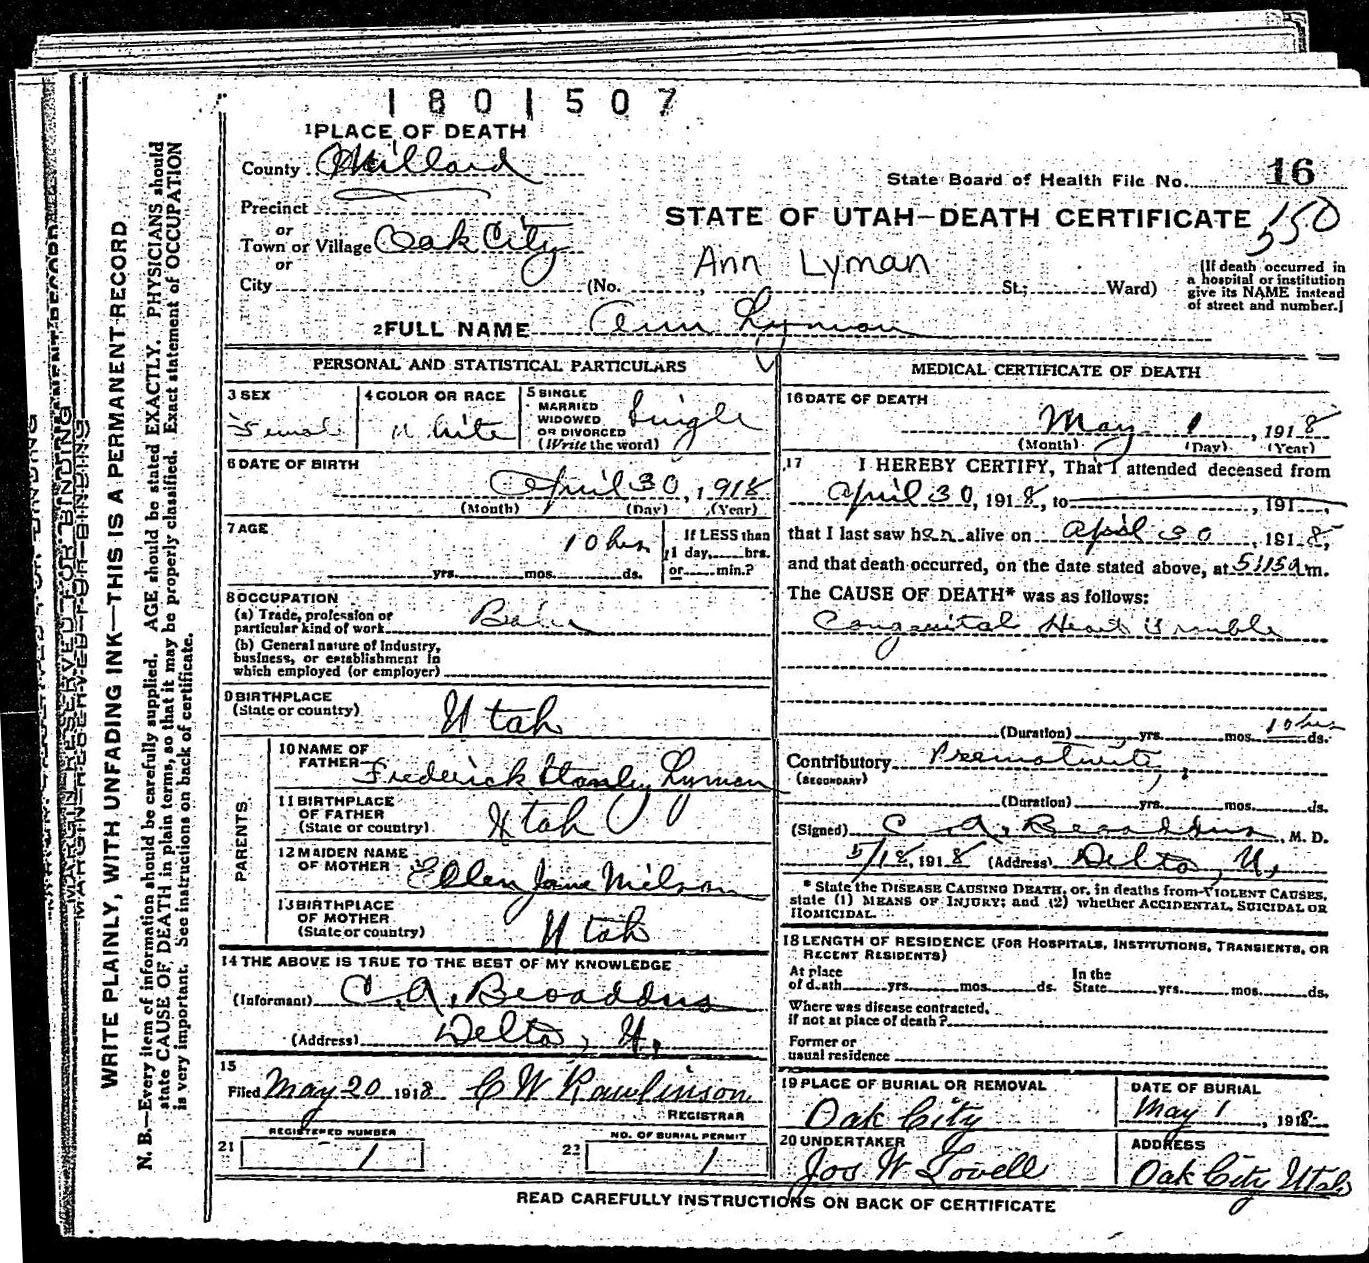 1801507
1 PLACE OF DEATH
County Millard
State Board of Health File No. 16
Precinct
STATE OF UTAH—DEATH CERTIFICATE 550
or
Town or Village Oak City
or
Ann Lyman
City (No. , St.; Ward)
[If death occurred in
a hospital or institution
give its NAME instead
of street and number.]
2 FULL NAME Ann Lyman
PERSONAL AND STATISTICAL PARTICULARS
3 SEX
Female
4 COLOR OR RACE
White
5 SINGLE
MARRIED
WIDOWED
OR DIVORCED
(Write the word)
Single
6 DATE OF BIRTH
April 30, 1918
(Month) (Day) (Year)
7 AGE
10 hrs
yrs. mos. ds.
If LESS than
1 day, hrs.
or min.?
8 OCCUPATION
(a) Trade, profession or
particular kind of work
(b) General nature of Industry,
business, or establishment in
which employed (or employer)
9 BIRTHPLACE
(State or country) Utah
PARENTS
10 NAME OF
FATHER Frederick Stanley Lyman
11 BIRTHPLACE
OF FATHER
(State or country) Utah
12 MAIDEN NAME
OF MOTHER Ellen Jane Nielson
13 BIRTHPLACE
OF MOTHER
(State or country) Utah
14 THE ABOVE IS TRUE TO THE BEST OF MY KNOWLEDGE
(Informant) C. A. Broaddus
(Address) Delta, U.
15
Filed May 20 1918 C W Rawlinson
REGISTRAR
21 REGISTERED NUMBER 1
22 NO. OF BURIAL PERMIT 1
MEDICAL CERTIFICATE OF DEATH
16 DATE OF DEATH
May 1, 1918
(Month) (Day) (Year)
17 I HEREBY CERTIFY, That I attended deceased from
April 30, 1918, to , 191 ,
that I last saw her alive on April 30, 1918,
and that death occurred, on the date stated above, at 5:15 a m.
The CAUSE OF DEATH* was as follows:
Congenital Heart Trouble
10 hrs
(Duration) yrs. mos. ds.
Contributory Prematurity
(SECONDARY)
(Duration) yrs. mos. ds.
(Signed) C A. Broaddus, M. D.
5/18, 1918 (Address) Delta, U.
* State the DISEASE CAUSING DEATH, or, in deaths from VIOLENT CAUSES,
state (1) MEANS OF INJURY; and (2) whether ACCIDENTAL, SUICIDAL OR
HOMICIDAL.
18 LENGTH OF RESIDENCE (FOR HOSPITALS, INSTITUTIONS, TRANSIENTS, OR
RECENT RESIDENTS)
At place
of death yrs. mos. ds.
In the
State yrs. mos. ds.
Where was disease contracted,
if not at place of death?
Former or
usual residence
19 PLACE OF BURIAL OR REMOVAL
Oak City
DATE OF BURIAL
May 1, 1918
20 UNDERTAKER
Jos W Lovell
ADDRESS
Oak City Utah
READ CAREFULLY INSTRUCTIONS ON BACK OF CERTIFICATE
MARGIN RESERVED FOR BINDING
WRITE PLAINLY, WITH UNFADING INK—THIS IS A PERMANENT RECORD
N. B.—Every item of information should be carefully supplied. AGE should be stated EXACTLY. PHYSICIANS should
state CAUSE OF DEATH in plain terms, so that it may be properly classified. Exact statement of OCCUPATION
is very important. See instructions on back of certificate.